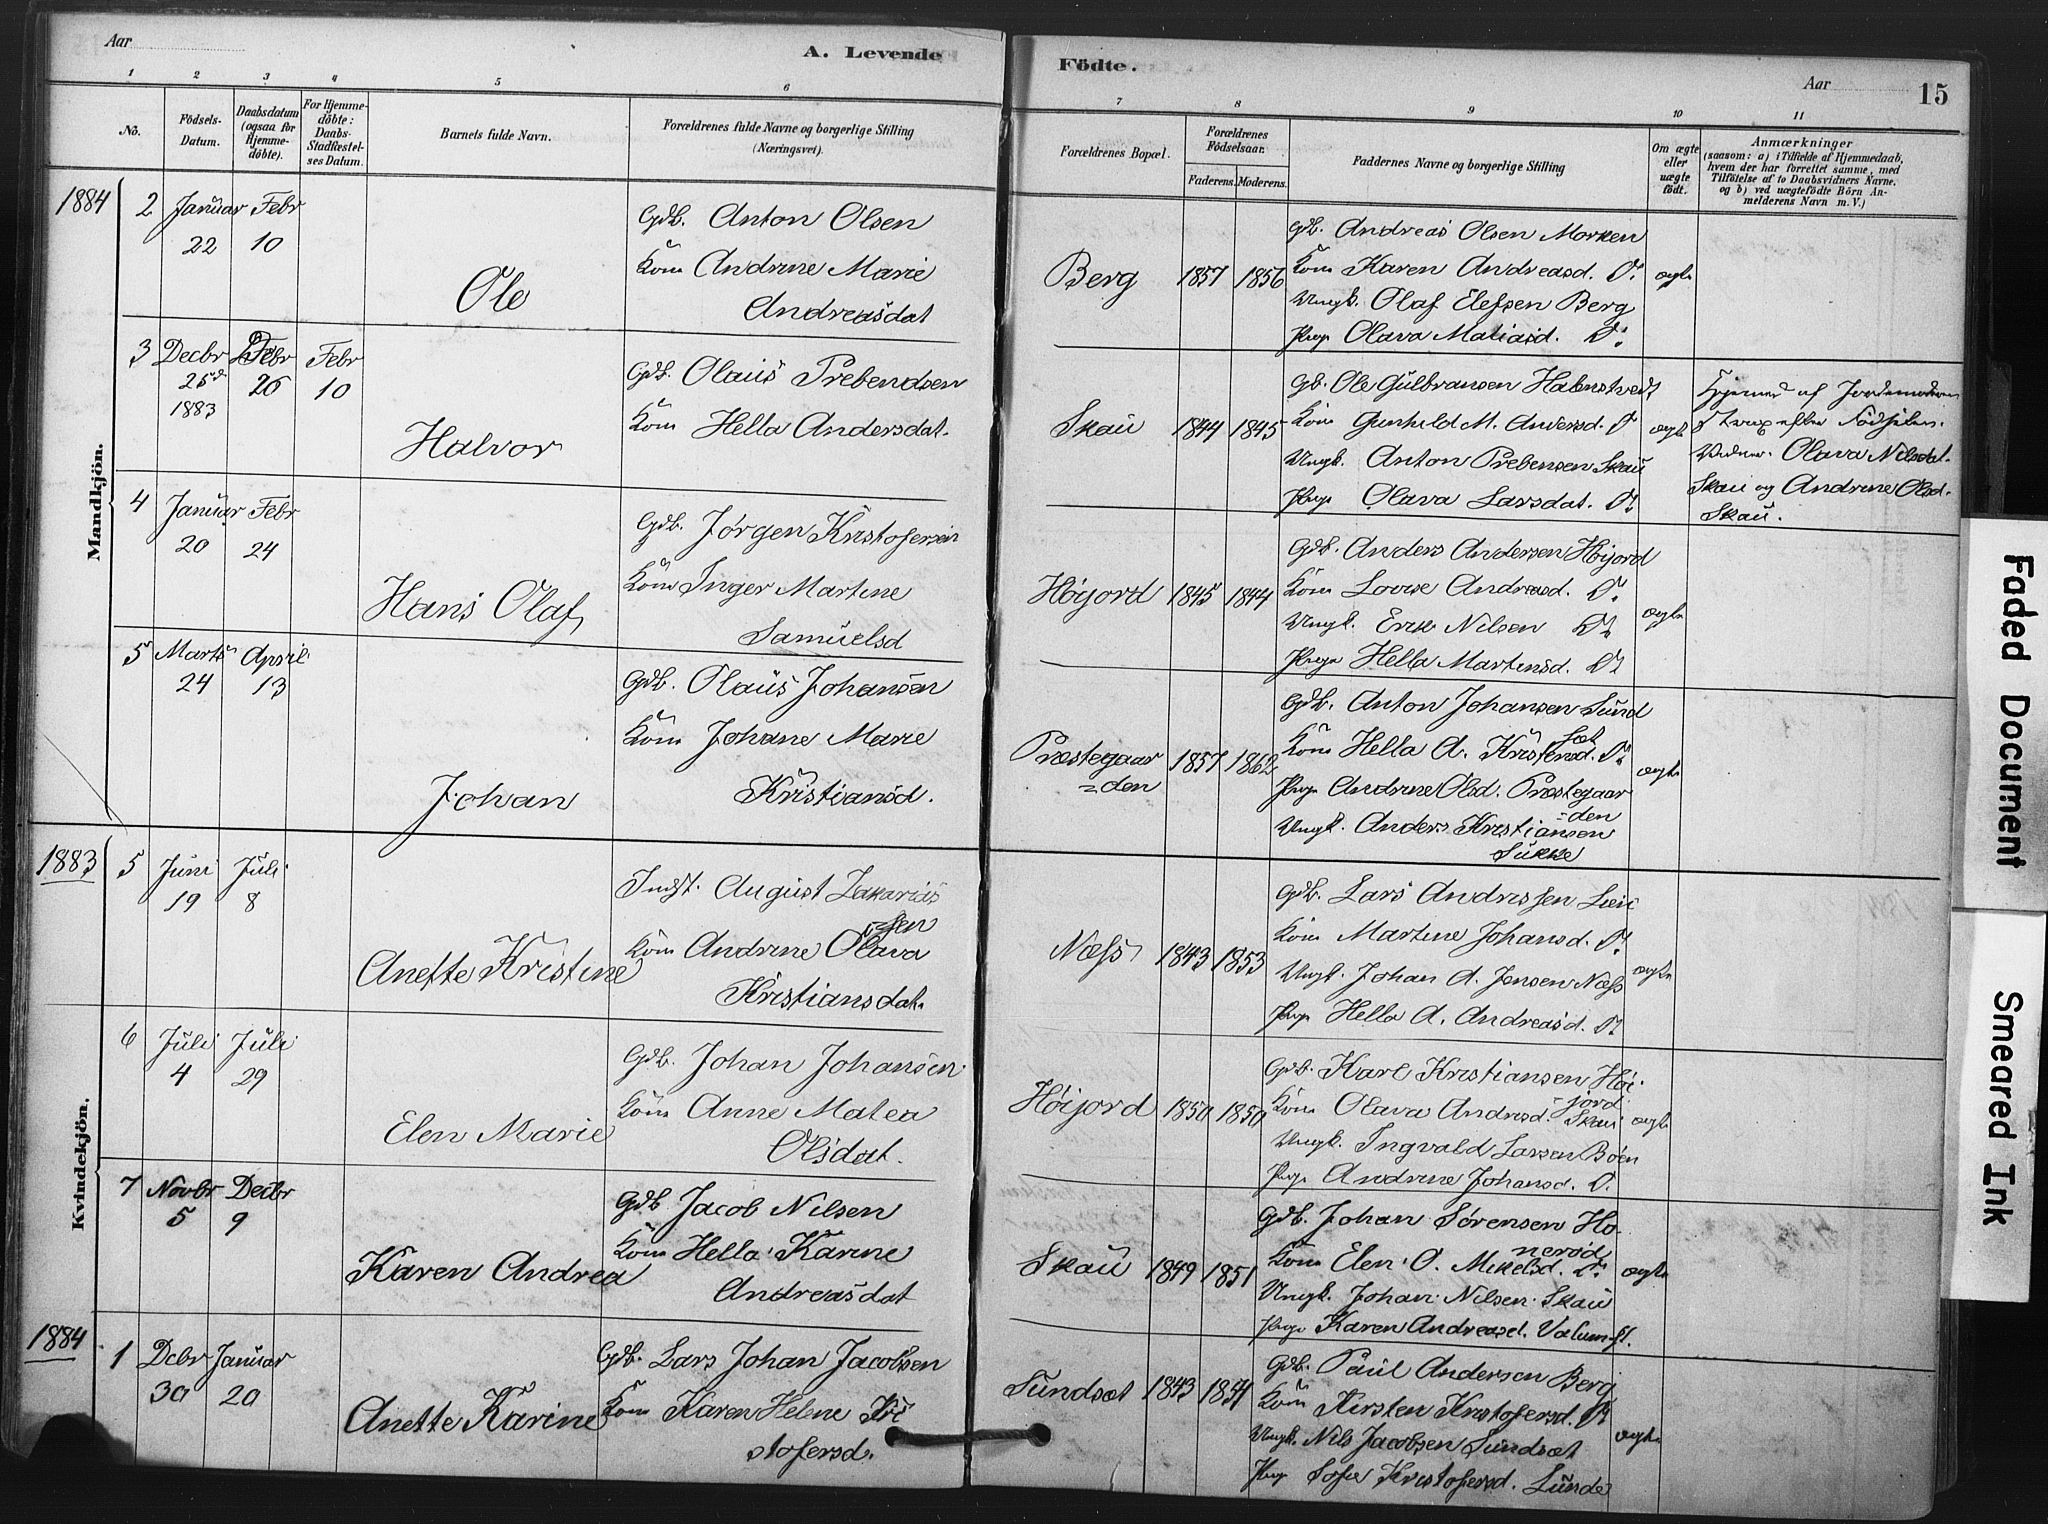 Aar
A. Levende
Födte.
Aar
15
1 2 3 4 5 6 7 8 9 10 11
No.
Födsels-
Datum.
Daabsdatum
(ogsaa for
Hjemme-
döbte).
For Hjemme-
döbte:
Daabs-
Stadfæstel-
ses Datum.
Barnets fulde Navn.
Forældrenes fulde Navne og borgerlige Stilling
(Næringsvei).
Forældrenes Bopæl.
Forældrenes
Födselsaar.
Faderens. Moderens.
Faddernes Navne og borgerlige Stilling
Om ægte
eller
uægte
födt.
Anmærkninger
(saasom: a) i Tilfælde af Hjemmedaab,
hvem der har forrettet samme, med
Tilföielse af to Daabsvidners Navne,
og b) ved uægtefödte Börn An-
melderens Navn m. V.)
Mandkjön.
1884
2 Januar Febr
22 10
Ole
Gdb. Anton Olsen
Kom Andrine Marie
Andreasdat
Berg 1857 1856
Gb. Andreas Olsen Morken
Kom Karen Andreasd. Do.
Ungk. Olaf Elefsen Berg
Pige Olava Matiasd. Do.
ægte
3 Decbr Febr Febr
25d 26 10
1883
Halvor
Gdb. Olaus Prebendsen
Kom Hella Andersdat.
Skau 1844 1845
Gb. Ole Gulbransen Halmstvedt
Kom Gunhild M. Andersd. Do
Ungk. Anton Prebensen Skau
Pige Olava Larsdat. Do
ægte
Hjemmed af Jordemoderen
strax efter Födselen.
Vidner. Olava Nilsdat.
Skau og Andrine Olsd.
Skau.
4 Januar Febr
20 24
Hans Olaf
Gdb. Jørgen Kristofersen
Kom Inger Martine
Samuelsd
Høijord 1845 1844
Gdb. Anders Andersen Høijord
Kom Lovise Andreasd. Do.
Ungk. Erik Nilsen Do
Pige Hella Martinsd. Do
ægte
5 Marts April
24 13
Johan
Gdb. Olaus Johansen
Kom Johane Marie
Kristiansd.
Præstegaar
=den 1857 1862
Gdb. Anton Johansen Sund
sæt
Kom Hella A. Kristensd. Do
Pige Andrine Olsd. Præstegaar
=den
Ungk. Anders Kristiansen
Sukke
ægte
Kvindekjön.
1883
5 Juni Juli
19 8
Anette Kristine
Indst. August Zakarias
sen
Kom Andrine Olava
Kristiansdat.
Næss 1843 1853
Gdb. Lars Andressen Lœi
Kom Martine Johansd. Do.
Ungk. Johan A. Jensen Næss
Pige Hella A. Andreasd. Do
ægte
6 Juli Juli
4 29
Elen Marie
Gdb. Johan Johansen
Kom Anne Matea
Olsdat.
Høijord 1850 1850
Gdb. Karl Kristiansen Høi
jord
Kom Olava Andreasd. Skau
Ungk. Ingvald Larsen Böen
Pige Andrine Johansd. Do.
ægte
7 Novbr Decbr
5 9
Karen Andrea
Gdb Jacob Nilsen
Kom Hella Karine
Andreasdat
Skau 1849 1851
Gdb. Johan Sørensen Ho-
nerød
Kom Elen O. Mikelsd. Do.
Ungk. Johan Nilsen Skau
Pige Karen Andreasd. Valum
ægte
1884
1 Dcbr Januar
30 20
Anette Karine
Gdb. Lars Johan Jacobsen
Kom Karen Helene Kri
stofersd.
Sundsæt 1843 1854
Gdb. Paul Andersen Berg
Kom Kirsten Kristofersd. Do
Ungk. Nils Jacobsen Sundsæt
Pige Sofie Kristofersd. Lunde
ægte
Faded Document
Smeared Ink